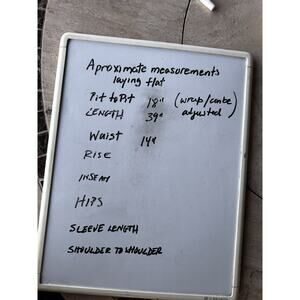 Aproximate measurements
laying flat
Pit to Pit 18" (wrap/can be
LENGTH 39" adjusted)
Waist 14"
RISE
INSEAM
HIPS
SLEEVE LENGTH
SHOULDER TO SHOULDER